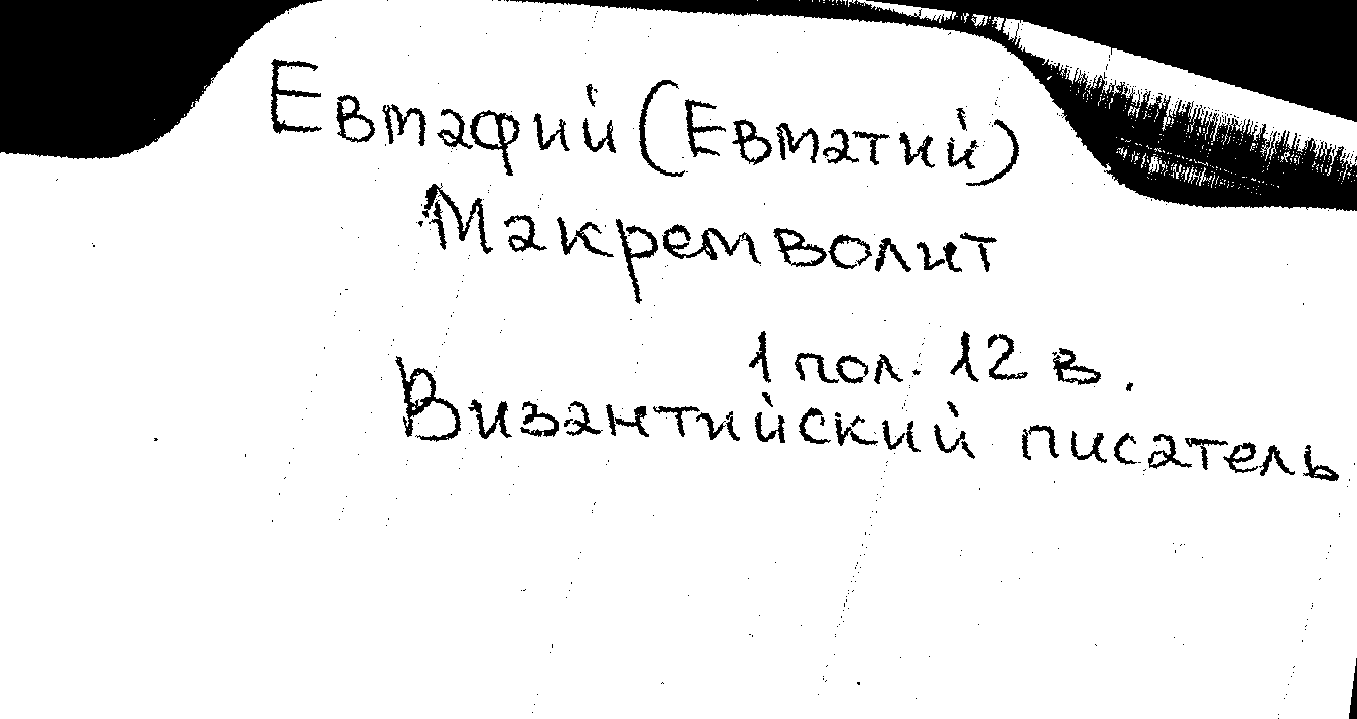 Евмафий (Евматий)
Макремволит
1 пол. 12 в.
Византийский писатель